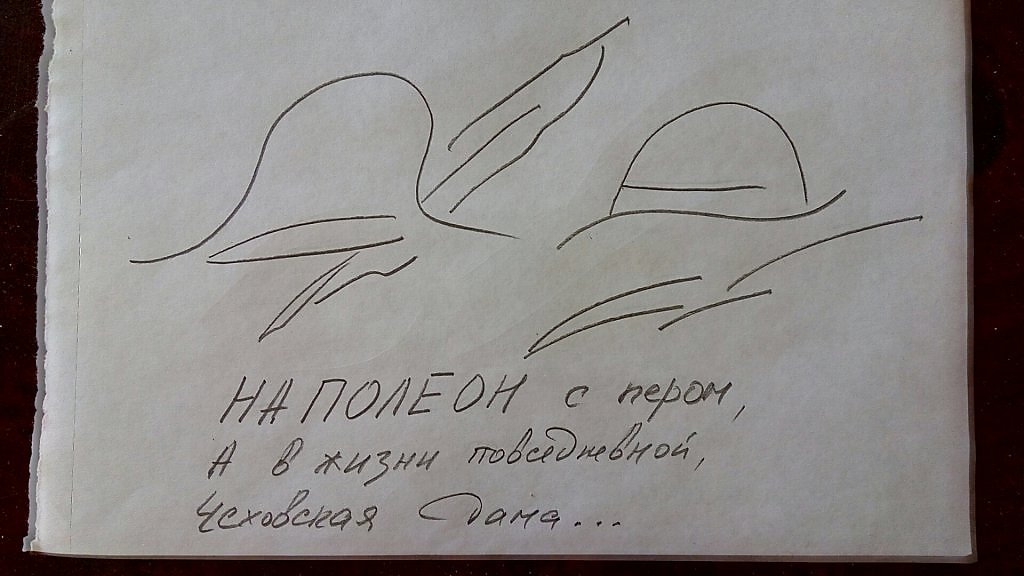 НАПОЛЕОН с пером,
А в жизни повседневной,
Чеховская Дама...